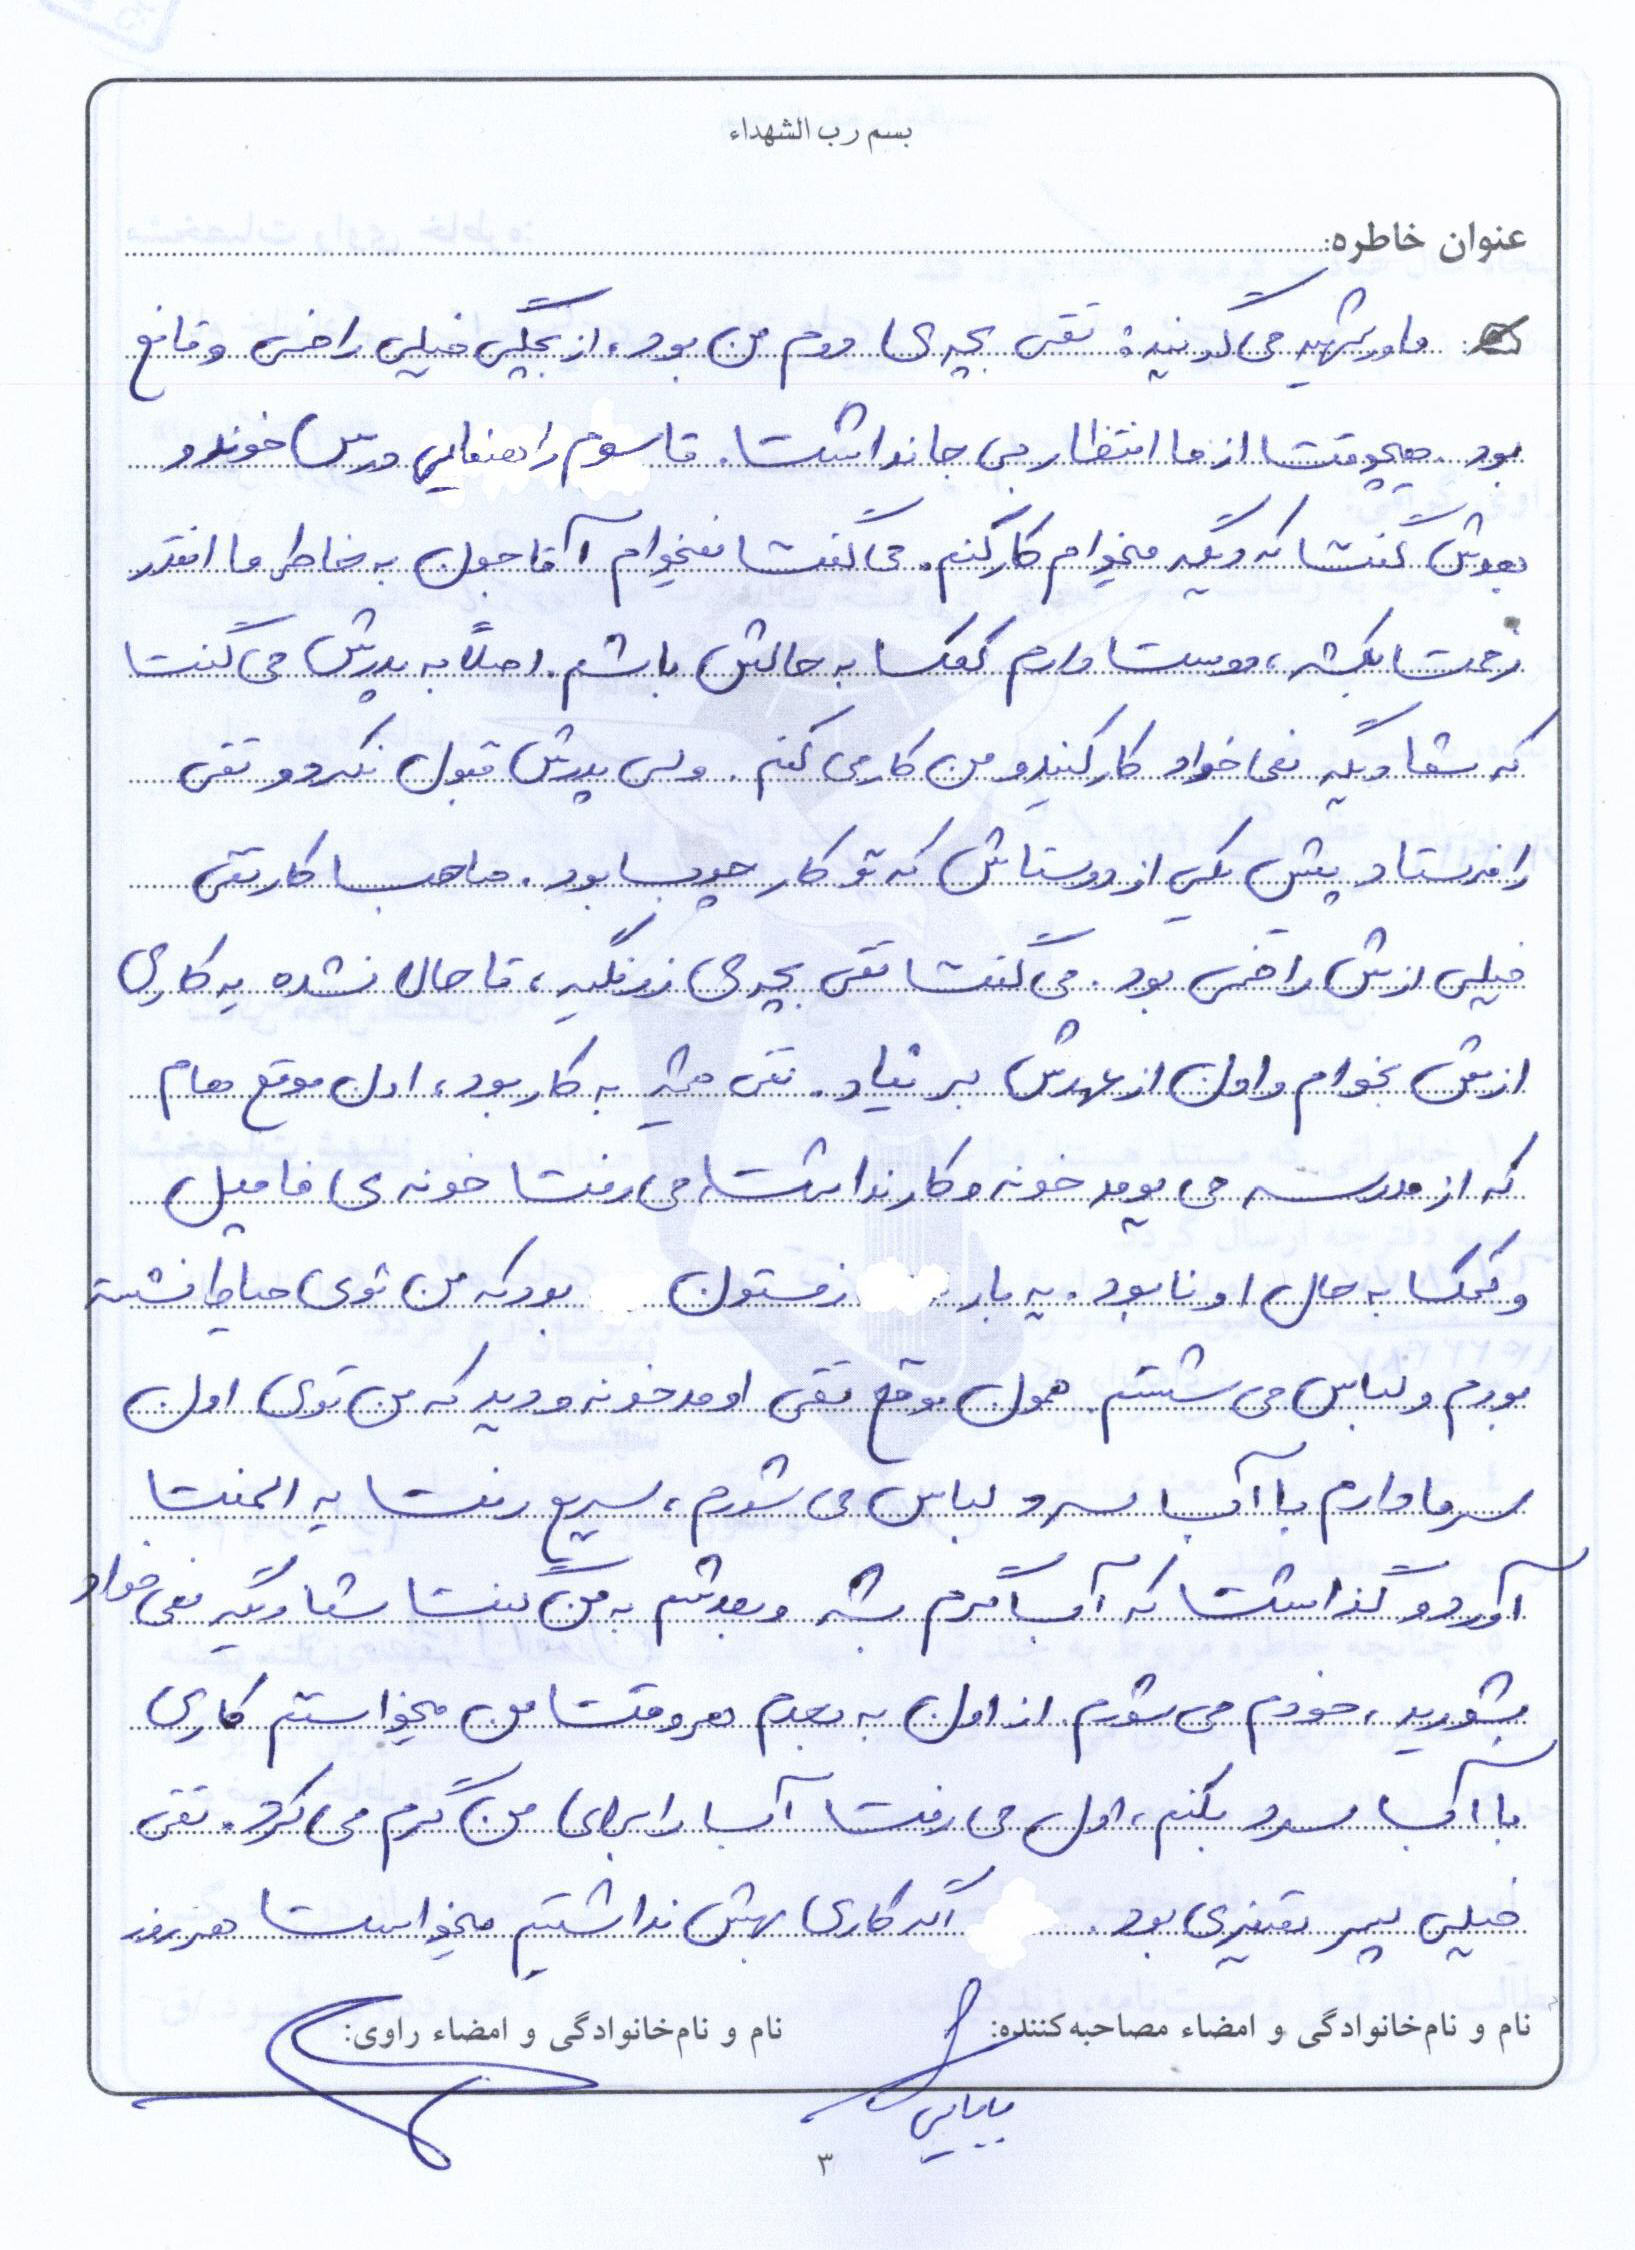 بسم رب الشهداء
عنوان خاطره:
مادر شهید می گویند: تقی بچه ی دوم من بود، از بچگی خیلی راضی و قانع
بود. هیچوقت از ما انتظار بی جا نداشت. تا سوم راهنمایی درس خوند و
بعدش گفت که دیگه میخوام کار کنم. می گفت نمیخوام آقاجون به خاطر ما انقدر
زحمت بکشه، دوست دارم کمک به حالش باشم. اصلاً به پدرش می گفت
که شما دیگه نمی خواد کار کنید و من کار می کنم. ولی پدرش قبول نکرد و تقی
را فرستاد پیش یکی از دوستاش که تو کار چوب بود. صاحب کار تقی
خیلی ازش راضی بود. می گفت تقی بچه ی زرنگیه، تا حالا نشده یه کاری
ازش بخوام و اون از عهدش بر نیاد. تقی همیشه به کار بود، اون موقع هام
که از مدرسه می یومد خونه و کار نداشت، می رفت خونه ی فامیل
و کمک به حال اونا بود. یه بار زمستون بود که من توی حیاط نشسته
بودم و لباس می شستم. همون موقع تقی اومد خونه و دید که من توی اون
سرما دارم با آب سرد لباس می شورم، سریع رفت یه المنت
آورد و گذاشت که آب گرم بشه و بعدشم به من گفت شما دیگه نمی خواد
بشورید، خودم می شورم. از اون به بعدم هر وقت من میخواستم کاری
با آب سرد بکنم، اول می رفت آب را برای من گرم می کرد. تقی
خیلی پسر تمیزی بود. اگه کاری بهش نداشتیم میخواست هر روز
نام و نام‌خانوادگی و امضاء مصاحبه‌کننده:
نام و نام‌خانوادگی و امضاء راوی:
بابایی
۳